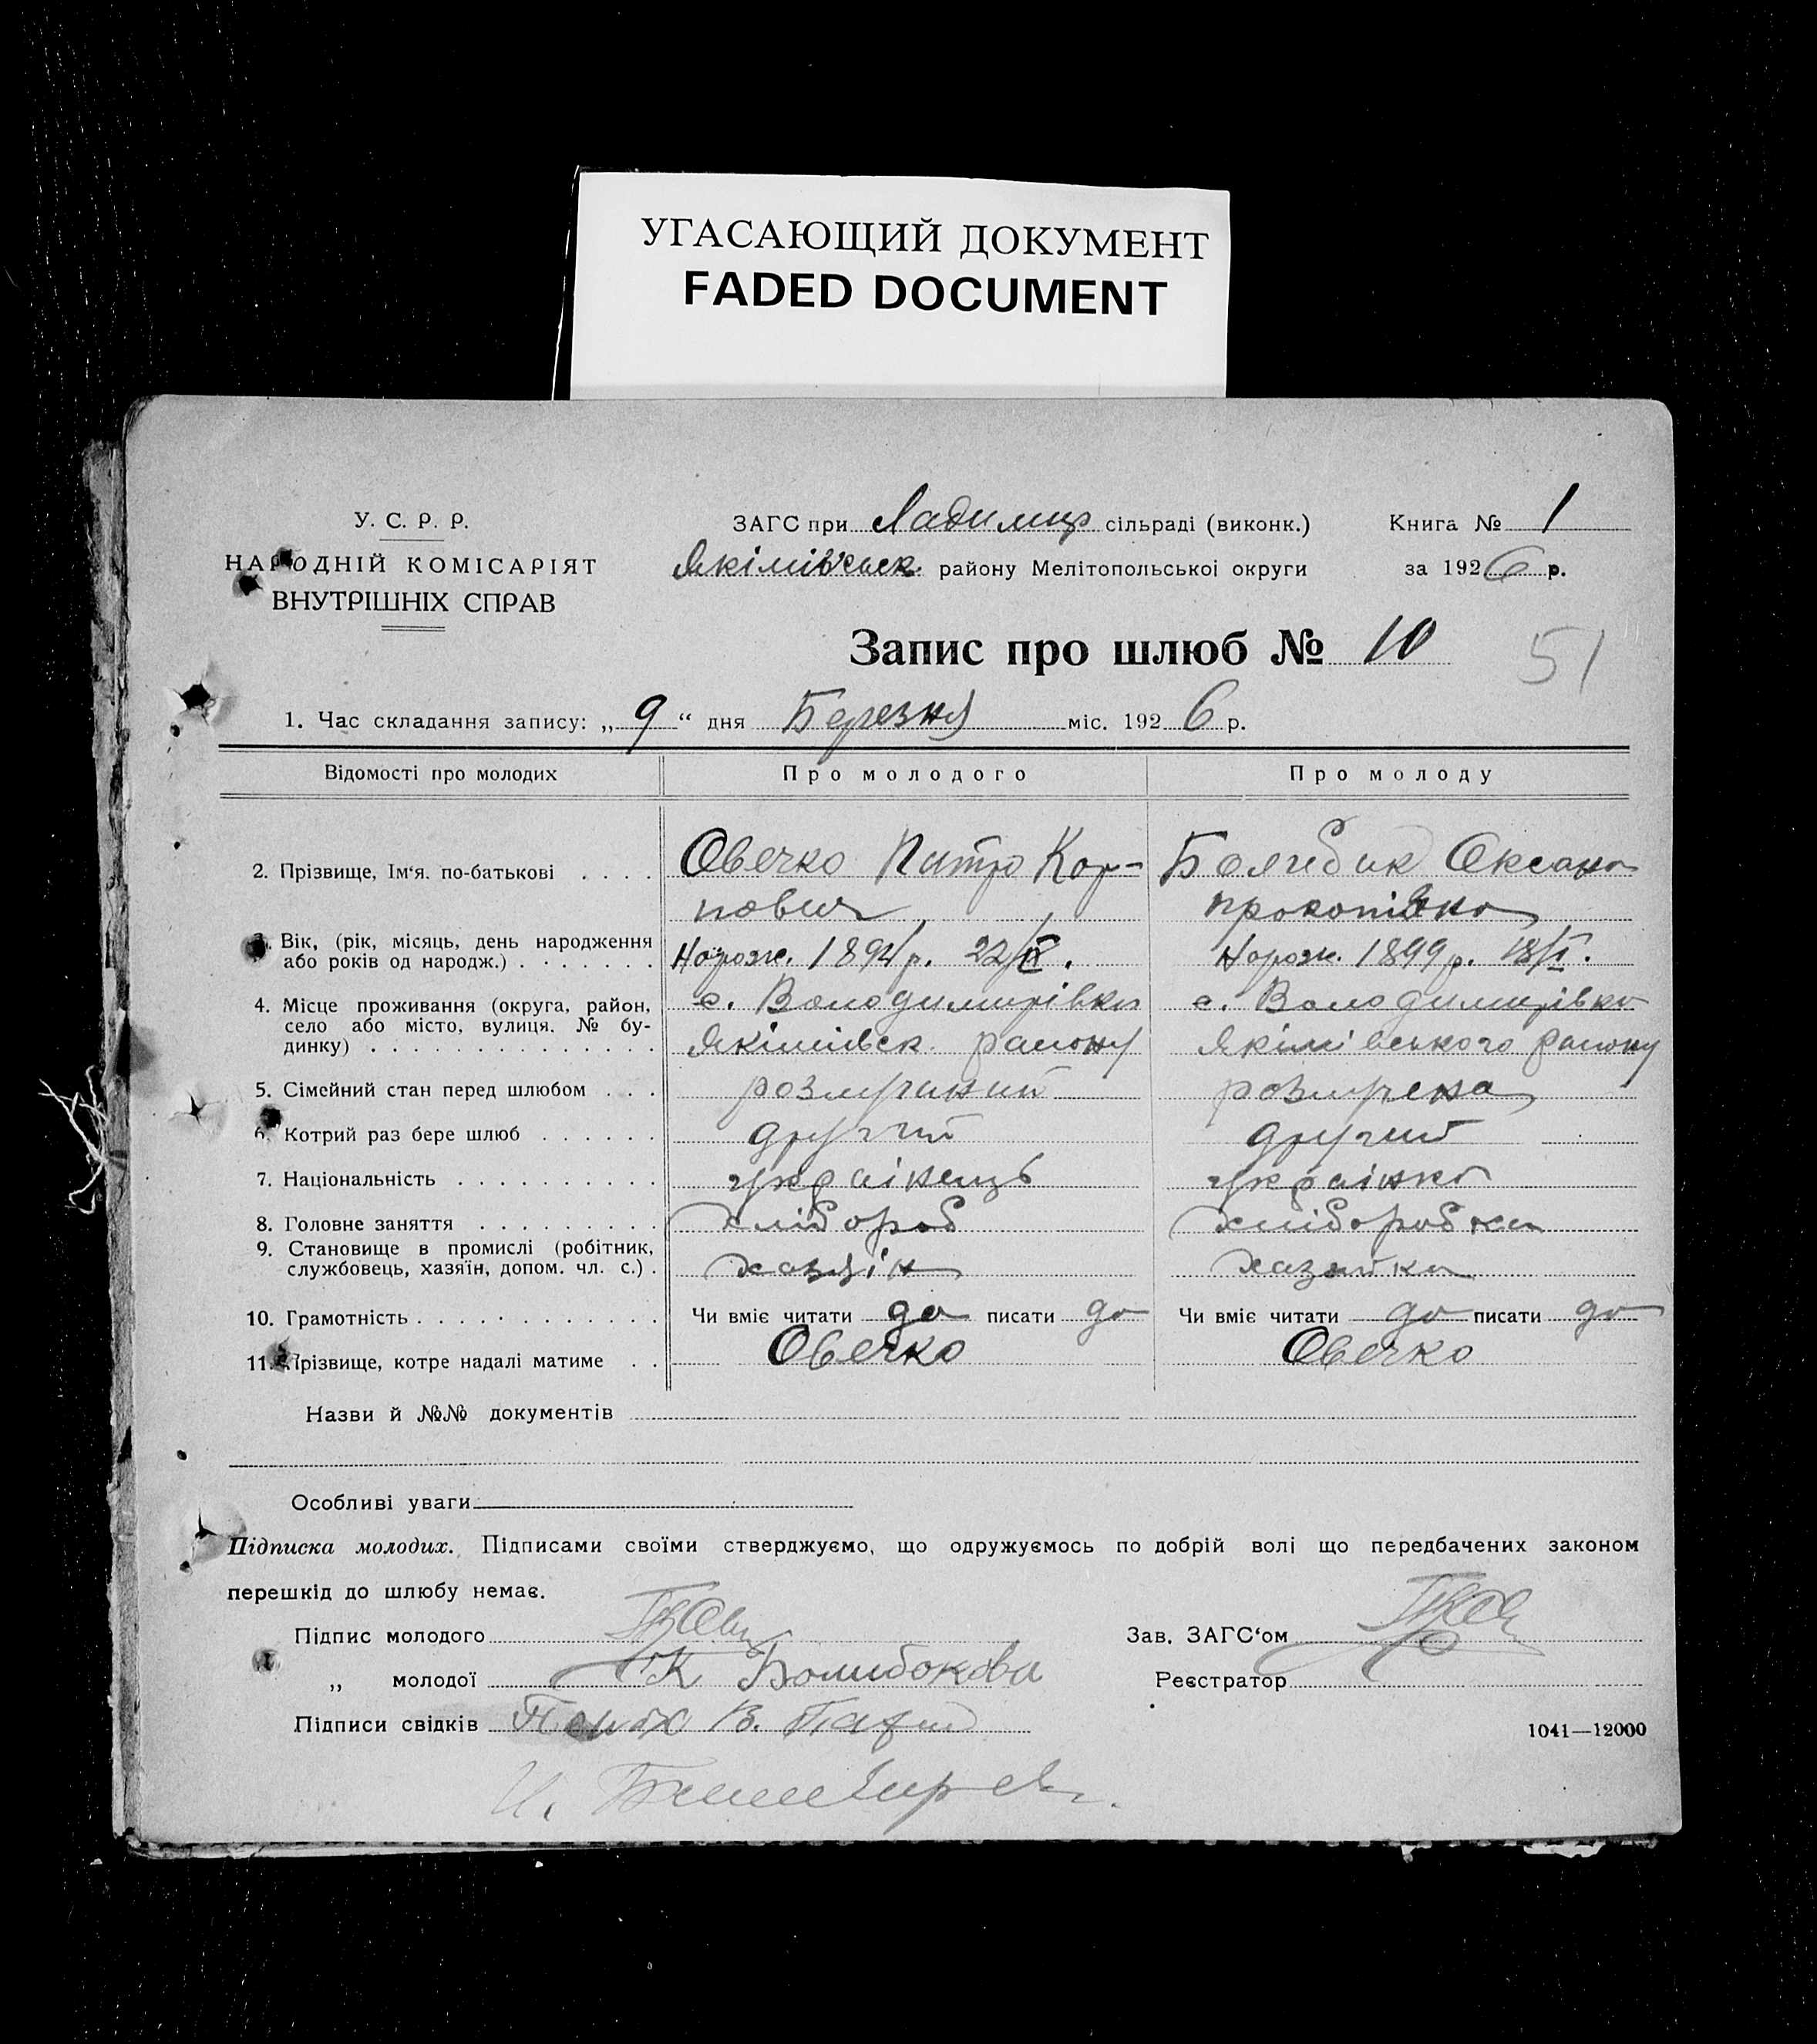 УГАСАЮЩИЙ ДОКУМЕНТ
FADED DOCUMENT
У. С. Р. Р.
НАРОДНІЙ КОМІСАРІЯТ
ВНУТРІШНІХ СПРАВ
ЗАГС при Ладимир сільраді (виконк.)
Якімівськ. району Мелітопольської округи
Книга № 1
за 1926 р.
Запис про шлюб № 10
51
1. Час складання запису: „ 9 “ дня Березня міс. 1926 р.
Відомості про молодих Про молодого Про молоду
2. Прізвище, Ім‘я. по-батькові . . . . Овечко Питро Кар- Оксана
пович Прокопівна
3. Вік, (рік, місяць, день народження Нарож. 1894 р. 22/ Нарож. 1899 р. 18/
або років од народж.) . . . . . . .
4. Місце проживання (округа, район, с. Володимирівка с. Володимирівка
село або місто, вулиця. № бу- Якімівськ. району Якімівського району
динку) . . . . . . . . . . . . . .
5. Сімейний стан перед шлюбом . . . розлучиний розлучена
6. Котрий раз бере шлюб . . . . . . другий другий
7. Національність . . . . . . . . . . українець українка
8. Головне заняття . . . . . . . . . хлібороб хліборобка
9. Становище в промислі (робітник, хазяін хазяйка
службовець, хазяїн, допом. чл. с.) .
10. Грамотність . . . . . . . . . . . . Чи вміє читати да писати да Чи вміє читати да писати да
11. Прізвище, котре надалі матиме . . Овечко Овечко
Назви й №№ документів
Особливі уваги
Підписка молодих. Підписами своїми стверджуємо, що одружуємось по добрій волі що передбачених законом
перешкід до шлюбу немає.
Підпис молодого Зав. ЗАГС‘ом
„ молодої К Реєстратор
Підписи свідків В.
1041—12000
И.